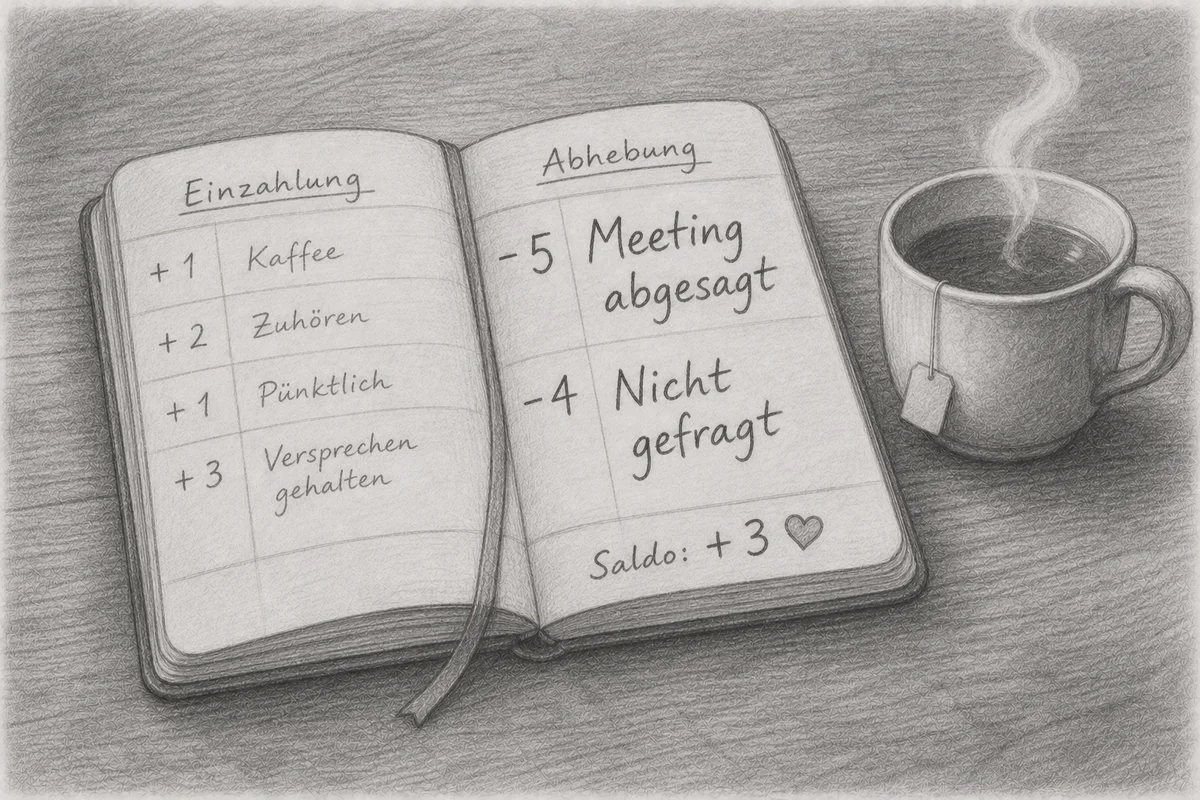 Einzahlung
+ 1 Kaffee
+ 2 Zuhören
+ 1 Pünktlich
+ 3 Versprechen
gehalten
Abhebung
- 5 Meeting
abgesagt
- 4 Nicht
gefragt
Saldo: + 3 ♥